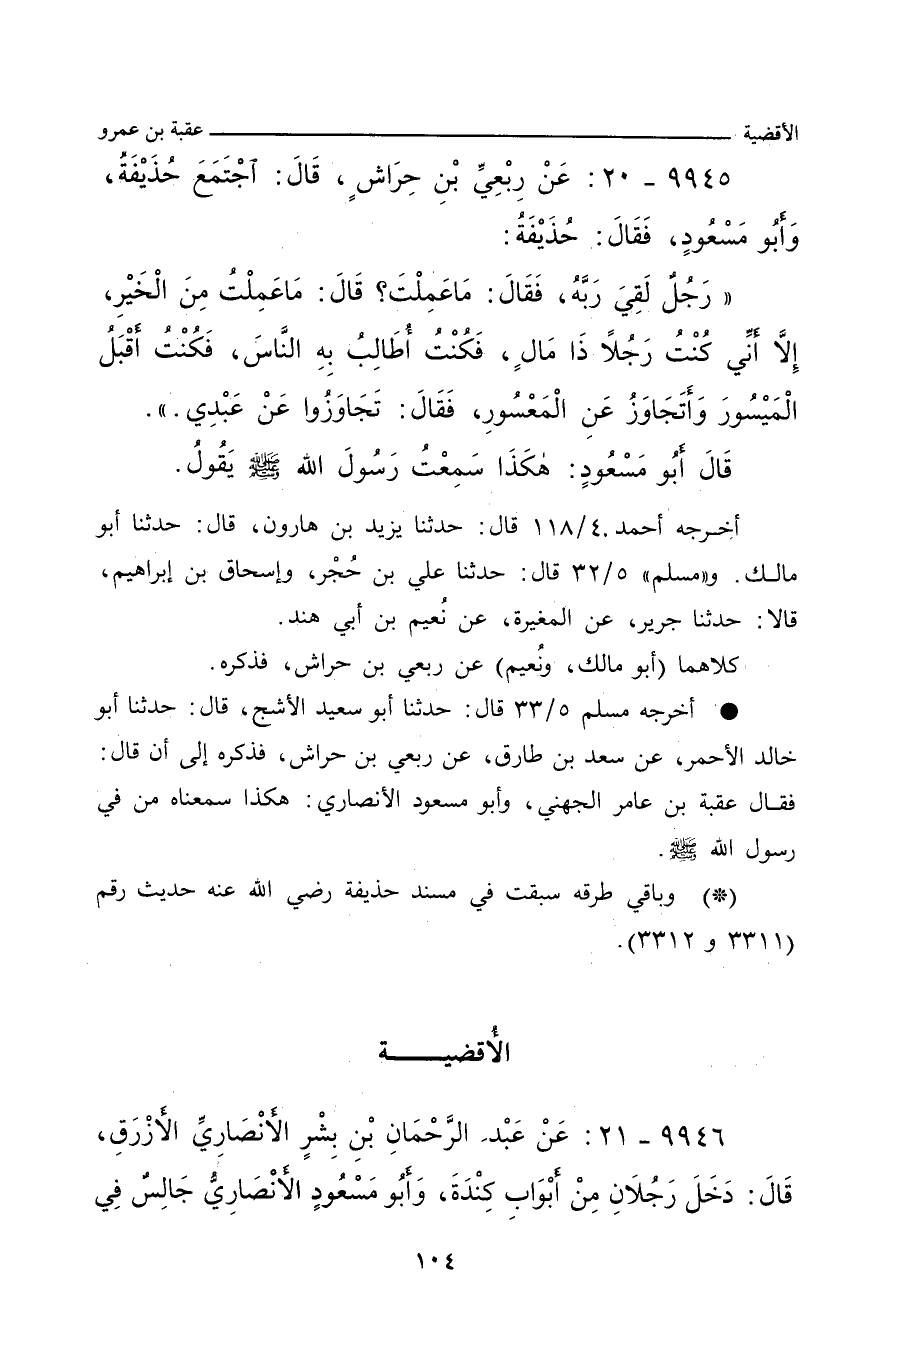 الأقضية ــــــــــــ عقبة بن عمرو
٩٩٤٥ - ٢٠ : عَنْ رِبْعِيِّ بْنِ حِرَاشٍ ، قَالَ : اَجْتَمَعَ حُذَيْفَةُ ،
وَأَبُو مَسْعُودٍ، فَقَالَ : حُذَيْفَةُ :
« رَجُلٌ لَقِيَ رَبَّهُ ، فَقَالَ : مَاعَمِلْتَ؟ قَالَ : مَاعَمِلْتُ مِنَ الْخَيْرِ ،
إِلَّا أَنِّي كُنْتُ رَجُلاً ذَا مَالٍ ، فَكُنْتُ أُطَالِبُ بِهِ النَّاسَ ، فَكُنْتُ أَقْبَلُ
الْمَيْسُورَ وَأَتَجَاوَزُ عَنِ الْمَعْسُورِ، فَقَالَ : تَجَاوَزُوا عَنْ عَبْدِي . ».
قَالَ أَبُو مَسْعُودٍ : هٰكَذَا سَمِعْتُ رَسُولَ الله ﷺ يَقُولُ .
أخرجه أحمد ٤/ ١١٨ قال : حدثنا يزيد بن هارون، قال : حدثنا أبو
مالك . و«مسلم» ٥/ ٣٢ قال : حدثنا علي بن حُجْر، وإسحاق بن إبراهيم،
قالا : حدثنا جرير، عن المغيرة، عن نُعيم بن أبي هند .
كلاهما (أبو مالك، ونُعيم) عن ربعي بن حراش، فذكره .
● أخرجه مسلم ٥/ ٣٣ قال : حدثنا أبو سعيد الأشج، قال : حدثنا أبو
خالد الأحمر، عن سعد بن طارق، عن ربعي بن حراش، فذكره إلى أن قال :
فقال عقبة بن عامر الجهني، وأبو مسعود الأنصاري : هكذا سمعناه من في
رسول الله ﷺ .
(*) وباقي طرقه سبقت في مسند حذيفة رضي الله عنه حديث رقم
(٣٣١١ و ٣٣١٢).
الأُقضيـــــة
٩٩٤٦ - ٢١ : عَنْ عَبْدِ الرَّحْمَانِ بْنِ بِشْرٍ الأَنْصَارِيِّ الأَزْرَقِ ،
قَالَ : دَخَلَ رَجُلَانِ مِنْ أَبْوَابِ كِنْدَةَ ، وَأَبُو مَسْعُودٍ الأَنْصَارِيُّ جَالِسٌ فِي
١٠٤